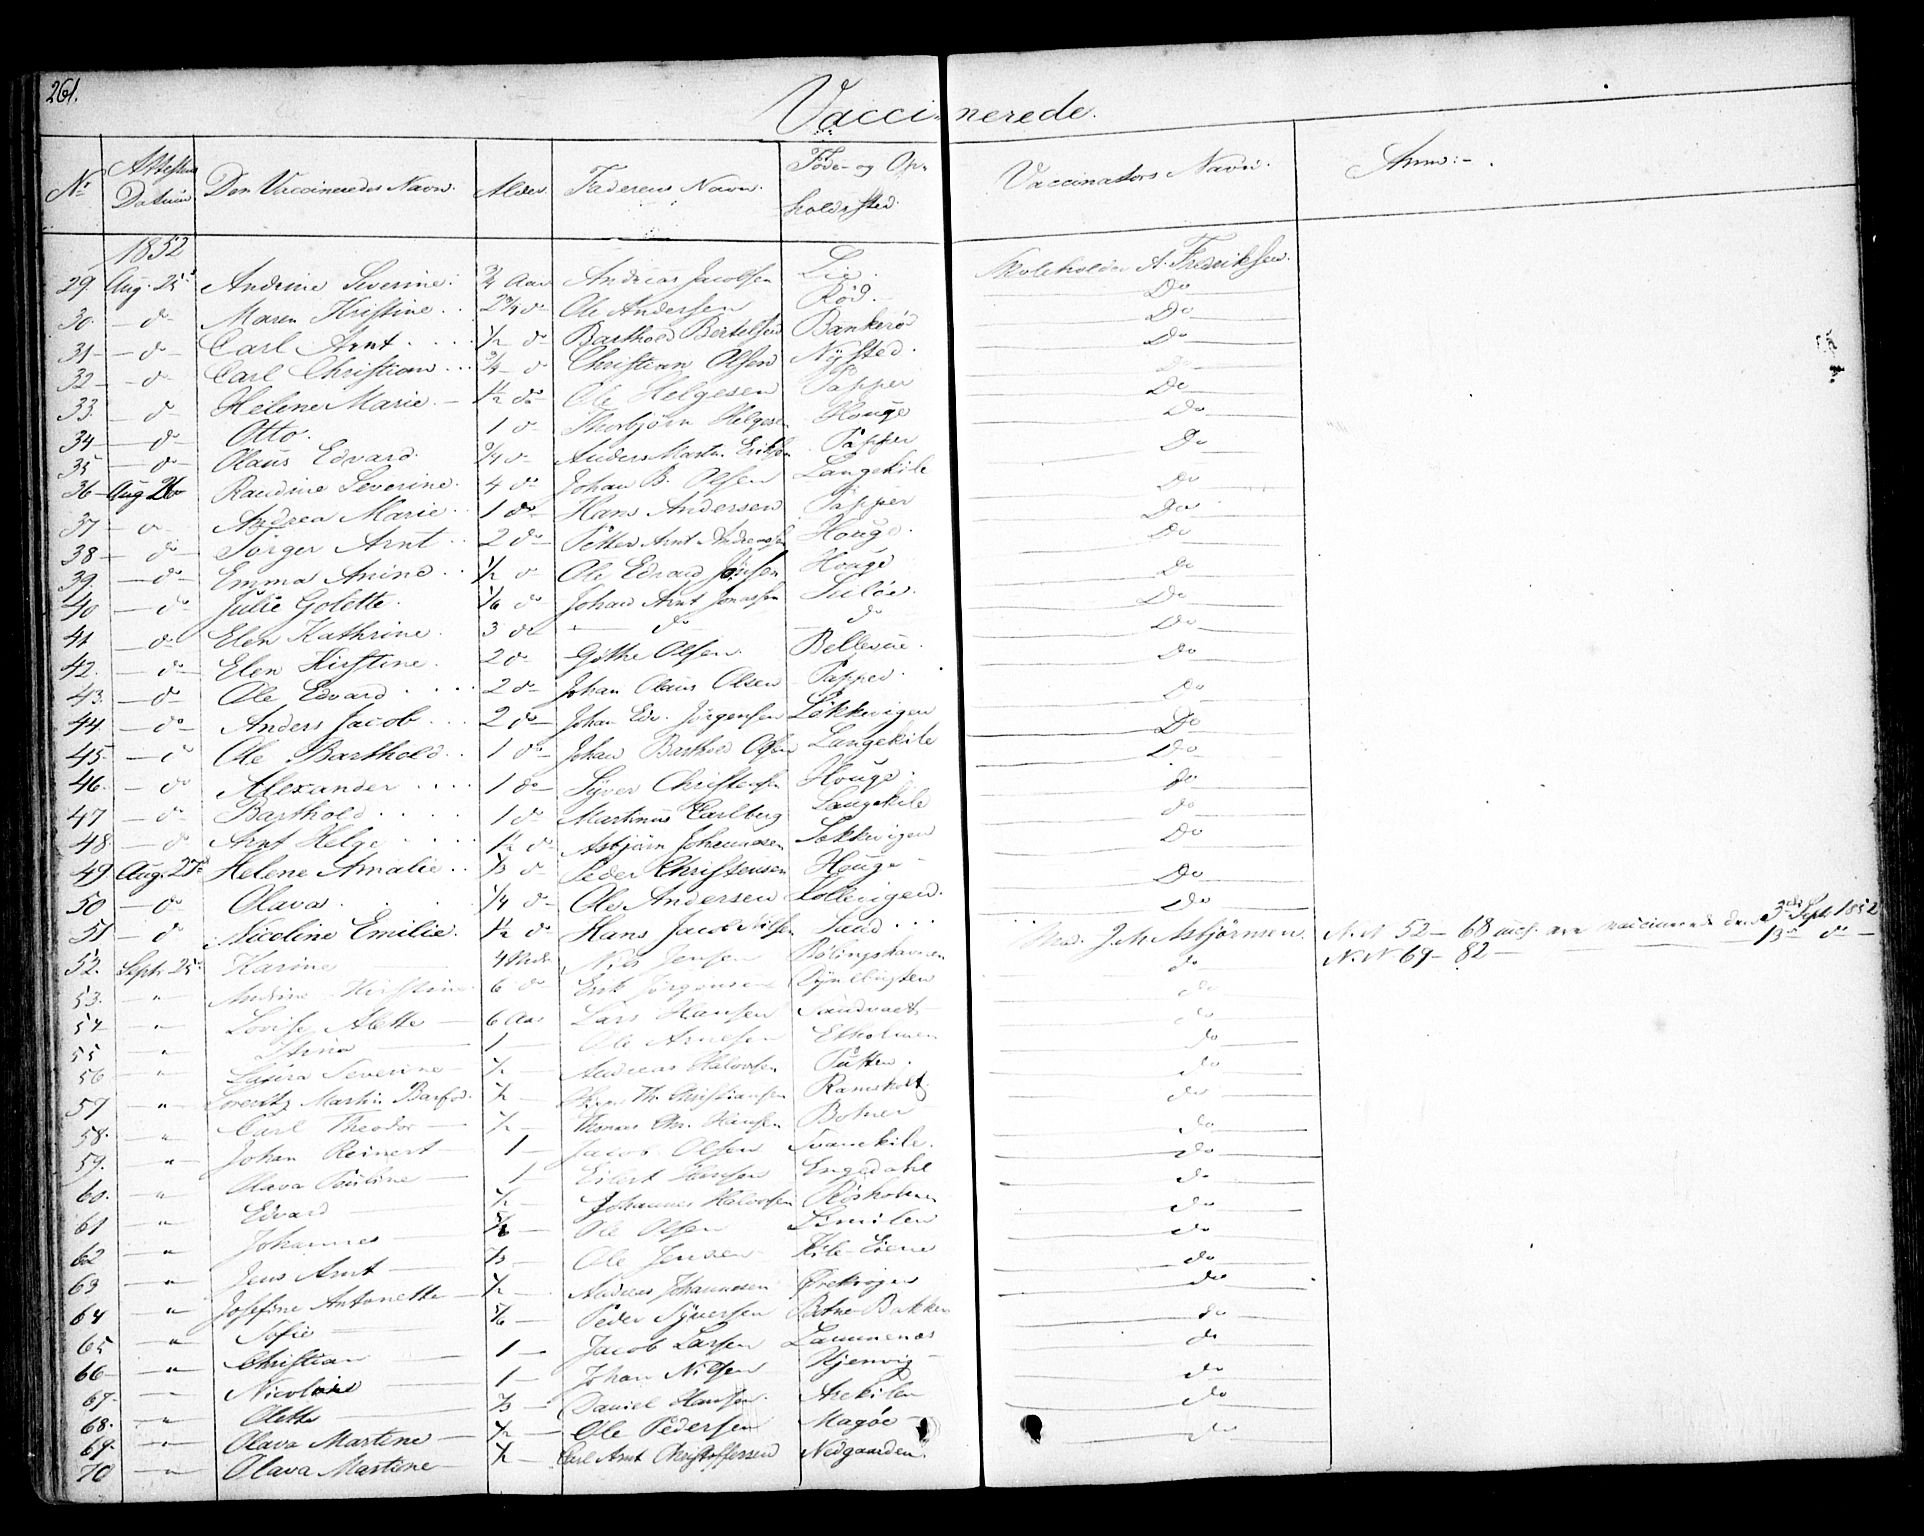 261.
Vaccinerede.
No Attestens Datum Den Vaccineredes Navn. Alder Faderens Navn. Føde- og Opholdssted. Vaccinators Navn. Anm:-
1852
29. Aug. 25 Andrine Severine. 3/4 Aar Andreas Jacobsen Lie. Skoleholder A. Fredriksen.
30. — do Maren Kristine. 2 3/4 do Ole Andersen Rød. Do
31 — do Carl Arnt 1/2 do Barthold Bertelsen Bankerød Do
32 — do Carl Christian 3/4 do Christian Olsen Nysted. Do
33. — do Helene Marie. 1 1/2 do Ole Helgesen Papper Do
34 — do Otto. 1 do Thorbjørn Helgesen Houge Do
35 — do Olaus Edvard. 3/4 do Anders Martin Eriksen Papper Do
36 — Aug 26 Randine Severine. 4 do Johan B. Olsen Langekile Do
37 — do Andrea Marie 1 do Hans Andersen Papper Do
38 — do Jørger Arnt 2 do Petter Arnt Andreassen Houge. Do
39. — do Emma Anine 1/2 do Ole Edvard Jonsen Houge Do
40 — do Julie Golette. 1/6 do Johan Arnt Jonassen Kiløe. Do
41 — do Elen Kathrine. 3 do — do — do Do
42. — do Elen Kirstine. 2 do Gøthe Olsen. Bellevue. Do
43. — do Ole Edvard 2 do Johan Olaus Olsen Papper. Do
44. — do Anders Jacob 2 do Johan Edv. Jørgensen Løkkevigen Do
45. — do Ole Barthold 1 do Johan Barthold Olsen Langekile Do
46. — do Alexander 1 do Syver Christensen Houge. do
47 — do Barthold 1 do Martinus Carlberg Langekile do
48 — do Arnt Helge 1 1/2 do Asbjørn Johannesen Løkkevigen Do
49. Aug. 27 Helene Amalie 1/3 do Peder Christensen Houge Do
50 — do Olava 1/4 do Ole Andersen Kollevigen. Do
51 — do Nicoline Emilie. 1 1/2 do Hans Jacob Nilsen Sand
52. Sept. 25 Karine 4 Mdr. Nils Jensen Rølingshavnen J. M. Asbjørnsen. N.N 52 — 68 vaccinerede den 3 Sept 1852
53. " Andrine Kirstine 6 do Erik Jørgensen do N.N 69 — 82 — 13 do —
54 " Lovise Alette — 6 Aar Lars Hansen Sandvaet do
55 " Stina 1 — Ole Arnesen Ekholmen do
56 " Laura Severine — 1/2 Andreas Halvorsen Putten. do
57 " Lorentz Martin Barfod. 1/2 — Th. Christiansen Ramsholt do
58. " Carl Theodor 1/2 — Thomas Chr. Hansen Botner do
59. " Johan Reinert 1 — Jacob Olsen Svanekile. do
60. " Olava Pauline 1 Eilert Hansen Engedahl do
61 " Edvard 1/2 — Johannes Halvorsen Røsholmen do
62 " Johannes — 5/6 — Ole Olsen do
63 " Jens Arnt — 1/3 — Ole Jensen Kile-Eiene do
64 " Josefine Antonette 1/2 — Andreas Johannesen Ørekrogen do
65 " Sofie 5/6 — Peder Syversen Botne-Bakken do
66 — " Christian 1 — Jacob Larsen Lammenæs do
67. " Nicolai 1 — Johan Nilsen Kjenvig do
68. " Olette 1/3 — Daniel Hansen. Arekilen do
69. — " Olava Martine — 1/2 — Ole Pedersen Magøe do
70 — " Olava Martine — 1/2 — Carl Arnt Christoffersen Nedgaarden. do